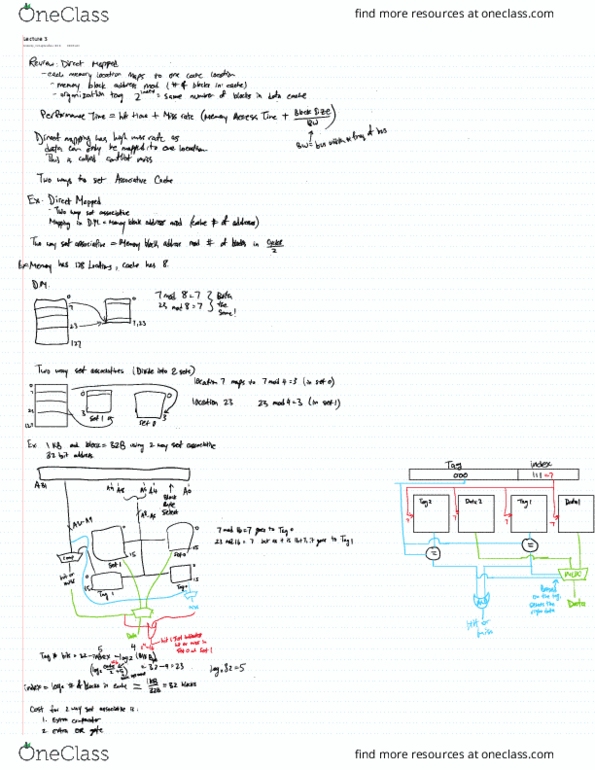 OneClass
find more resources at oneclass.com
Lecture 3
Review: Direct Mapped
- each memory location maps to one cache location
- memory block address mod (# of blocks in cache)
- organization tag 2^index = same number of blocks in data cache
Performance Time = hit time + Miss rate (Memory Access Time + Block Size / BW)
BW = bus width x freq of bus
Direct mapping has high miss rate as
data can only be mapped to one location.
This is called conflict miss
Two ways to set Associative Cache
Ex: Direct Mapped
- Two way set associative
Mapping in D.M. = Memory block address mod (cache # of address)
Two way set associative = Memory block address mod # of blocks in cache / 2
Ex: Memory has 128 locations, cache has 8.
D.M.
0
7
23
127
0
7, 23
7 mod 8 = 7
23 mod 8 = 7
Both the same!
Two way set associative (Divide into 2 sets)
location 7 maps to 7 mod 4 = 3 (in set 0)
location 23 23 mod 4 = 3 (in set 1)
0
7
23
127
0
3
set 1
0
3
set 0
Ex 1 KB and block = 32B using 2 way set associative
32 bit address
A31
A5
A4
A0
Block Byte Select
0
15
Set 1
Set 0
comp
hit or miss
Tag 1
Tag 0
Data
7 mod 16 = 7 goes to Tag 0
23 mod 16 = 7 but as 7 is in it, it goes to Tag 1
Tag
index
000
111 = 7
Tag 2
Data 2
Tag 1
Data 1
7
=
=
MUX
AND
hit or miss
Based on the tag, selects the right data
Data
Tag # bits = 32 - index - log2 (
= 32 - 9 = 23
log2 32 = 5
index = log2 # of blocks in cache = 1KB / 32B = 32 blocks
Cost for 2 way set associative is:
1. Extra comparator
2. extra OR gate
OneClass
find more resources at oneclass.com